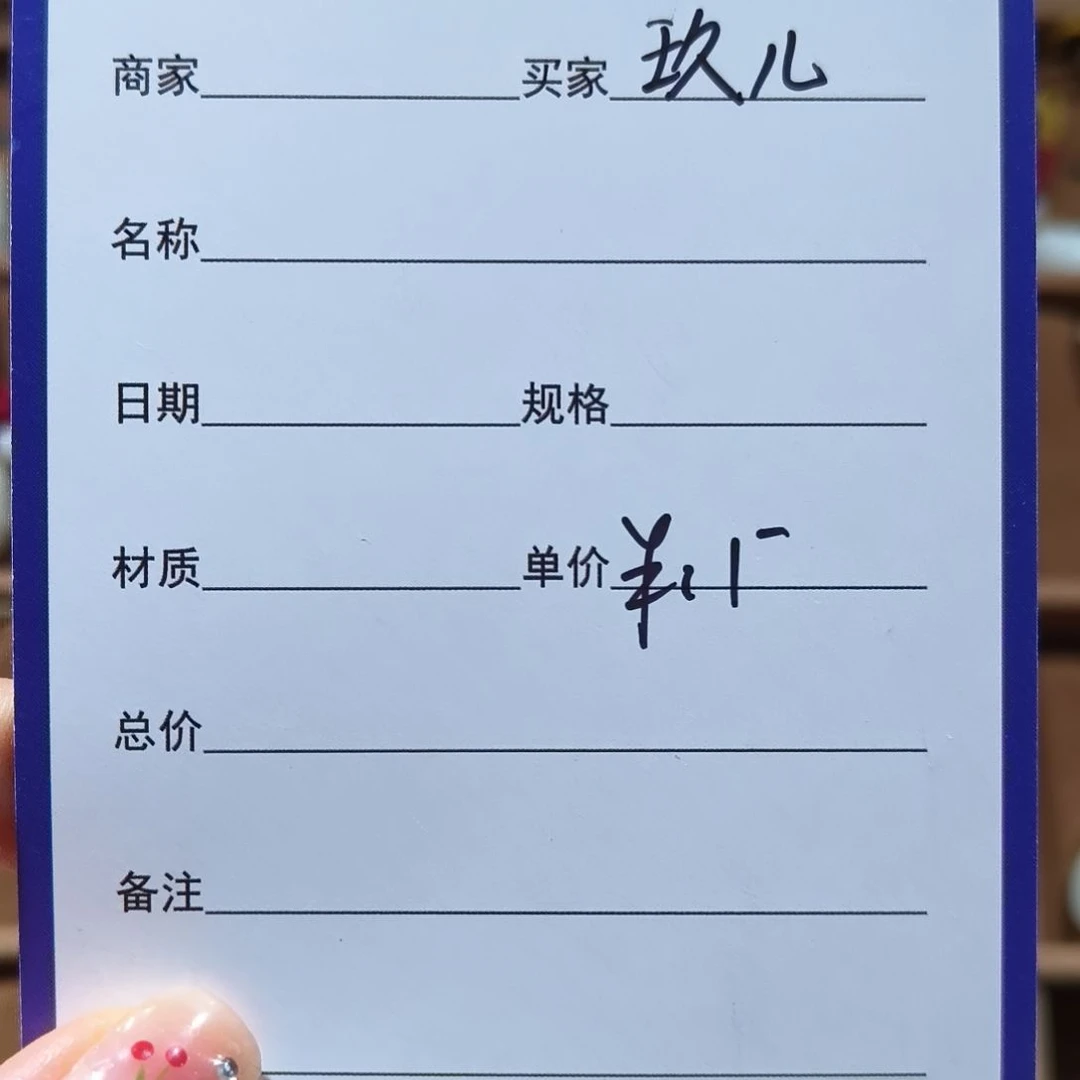 商家 买家 玖儿
名称
日期 规格
材质 单价 ¥
总价
备注